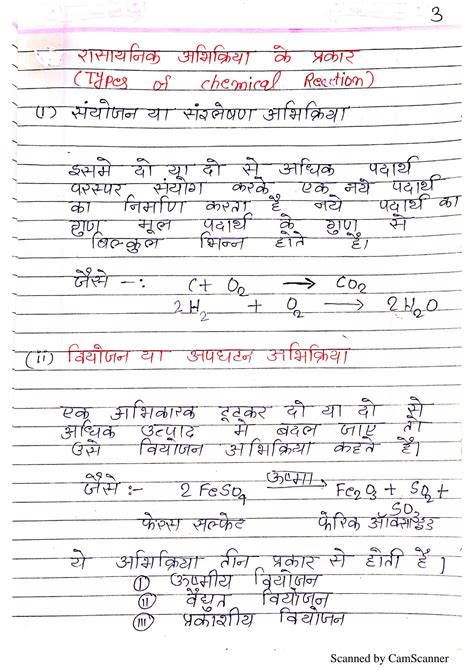 3
रासायनिक अभिक्रिया के प्रकार
(Types of chemical Rection)
(i) संयोजन या संश्लेषण अभिक्रिया
इसमे दो या दो से अधिक पदार्थ
परस्पर संयोग करके एक नये पदार्थ
का निर्माण करता है नये पदार्थ का
गुण मूल पदार्थ के गुण से
बिल्कुल भिन्न होते है।
जैसे -: C + O2 → CO2
2H2 + O2 → 2H2O
(ii) वियोजन या अपघटन अभिक्रिया
एक अभिकारक टूटकर दो या दो से
अधिक उत्पाद मे बदल जाए तो
उसे वियोजन अभिक्रिया कहते है।
जैसे :- 2 FeSO4 ऊष्मा→ Fe2O3 + SO2 +
SO3
फेरस सल्फेट फेरिक ऑक्साइड
ये अभिक्रिया तीन प्रकार से होती है।
(i) ऊष्मीय वियोजन
(ii) वैधुत वियोजन
(iii) प्रकाशीय वियोजन
Scanned by CamScanner